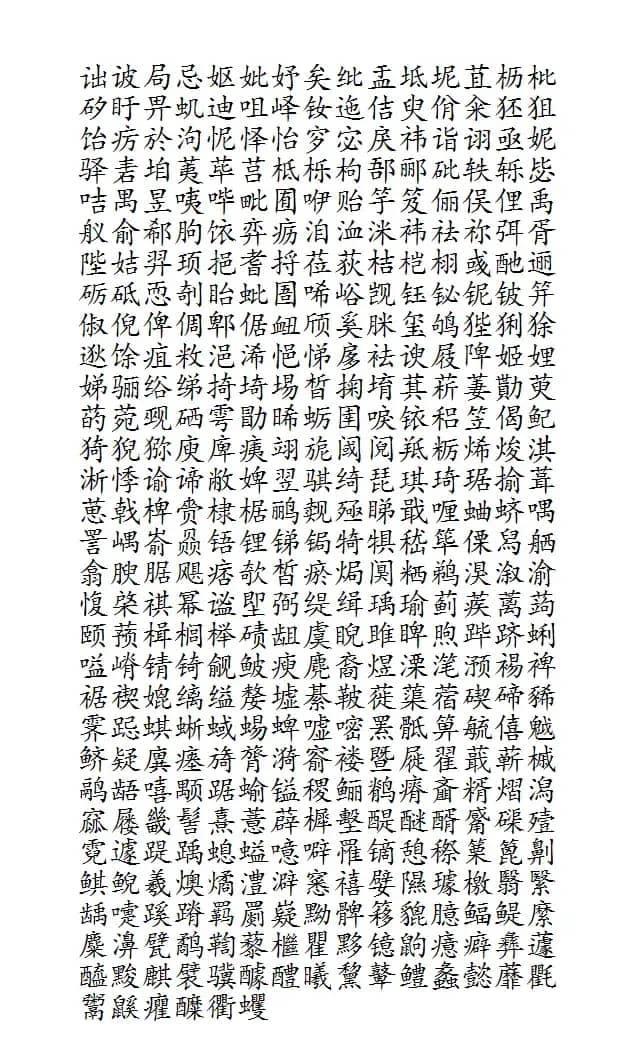 诎诐局忌妪妣妤矣纰盂坻坭苴枥枇
矽盱畀虮迪咀峄钕迤佶臾佾籴狉狙
饴疠於泃怩怿怡穸宓戾祎诣诩亟妮
驿砉垍荑荜莒柢栎枸郚郦砒轶轹毖
咭禺昱咦哔毗囿咿贻竽笈俪俣俚禹
舣俞郗朐饻弈疬洎洫洣祎祛祢弭胥
陛姞羿顼挹耆捋莅荻桔桤栩彧酏逦
砺砥恧剞眙蚍圄唏峪觊钰铋铌铍笄
俶倪俾倜郫倨衄颀奚脒玺鸲狴猁狳
逖馀疽敉浥浠悒悌扅袪谀屐陴姬娌
娣骊绤绨掎埼埸晳掬堉萁菥萋勚萸
菂菀觋硒雩勖晞蛎圉唳铱稆笠偈鱾
猗猊猕庾庳痍翊旎阈阋羝粝烯焌淇
淅悸谕谛敝婢翌骐绮琵琪琦琚揄葺
葸戟椑赍棣椐鹂觌殛睇戢喱蛐蛴喁
詈嵎嵛赑铻锂锑锔犄犋嵇筚傈舄舾
翕腴腒飓痞欹皙瘀焗阒粞鹈淏溆渝
愎棨祺幂谧堲弼缇缉瑀瑜蓟蒺蓠蒟
颐蓣楫榈榉碛龃虞睨雎睥煦跸跻蜊
嗌嵴锖锜觎鲏瘐麂裔煜溧滗滪裼裨
裾禊媲缡缢嫠墟綦鞁蓰蕖蓿碶碲豨
霁跽蜞蜥蜮蜴蜱嘘嘧罴骶箅毓僖魆
鲚疑廙瘗旖膂漪窬褛暨屣翟蕺蕲槭
鹝龉嘻颙踞蝓镒稷鲡鹡瘠齑糈熠潟
窳屦畿髻熹薏薜樨墼醍醚醑觱磲殪
霓遽踶踽螅螠噫噼罹镝憩穄篥篦劓
鲯鲵羲燠燏澧澼窸禧嬖隰璩檄翳繄
龋嚏蹊蹐羁罽嶷黝髀簃貔臆鳊鳀縻
麋濞甓鹬鞫藜檵瞿黟镱鼩癔癖彝蘧
醯黢麒襞骥醵醴曦黧鼙鳢蠡懿蘼氍
鬻鼷癯醾衢蠼